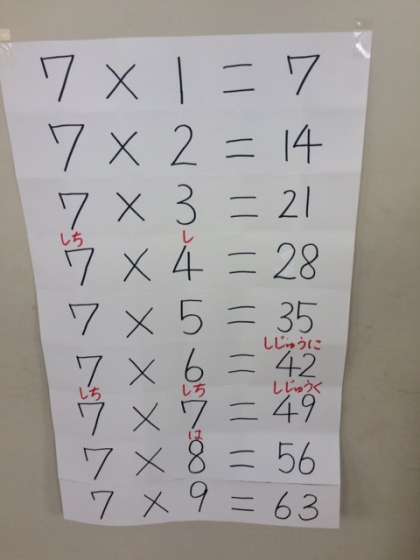 7 × 1 = 7
7 × 2 = 14
7 × 3 = 21
しち し
7 × 4 = 28
7 × 5 = 35
しじゅうに
7 × 6 = 42
しち しち しじゅうく
7 × 7 = 49
は
7 × 8 = 56
7 × 9 = 63